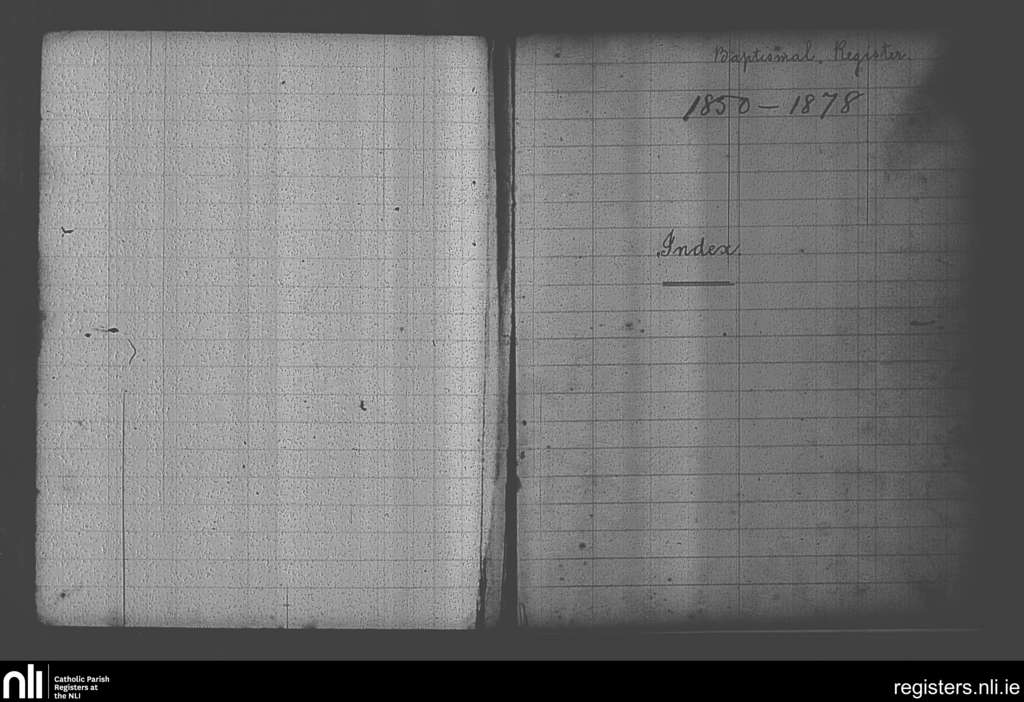 Baptismal Register.
1850 — 1878
Index.
nli
Catholic Parish
Registers at
the NLI
registers.nli.ie